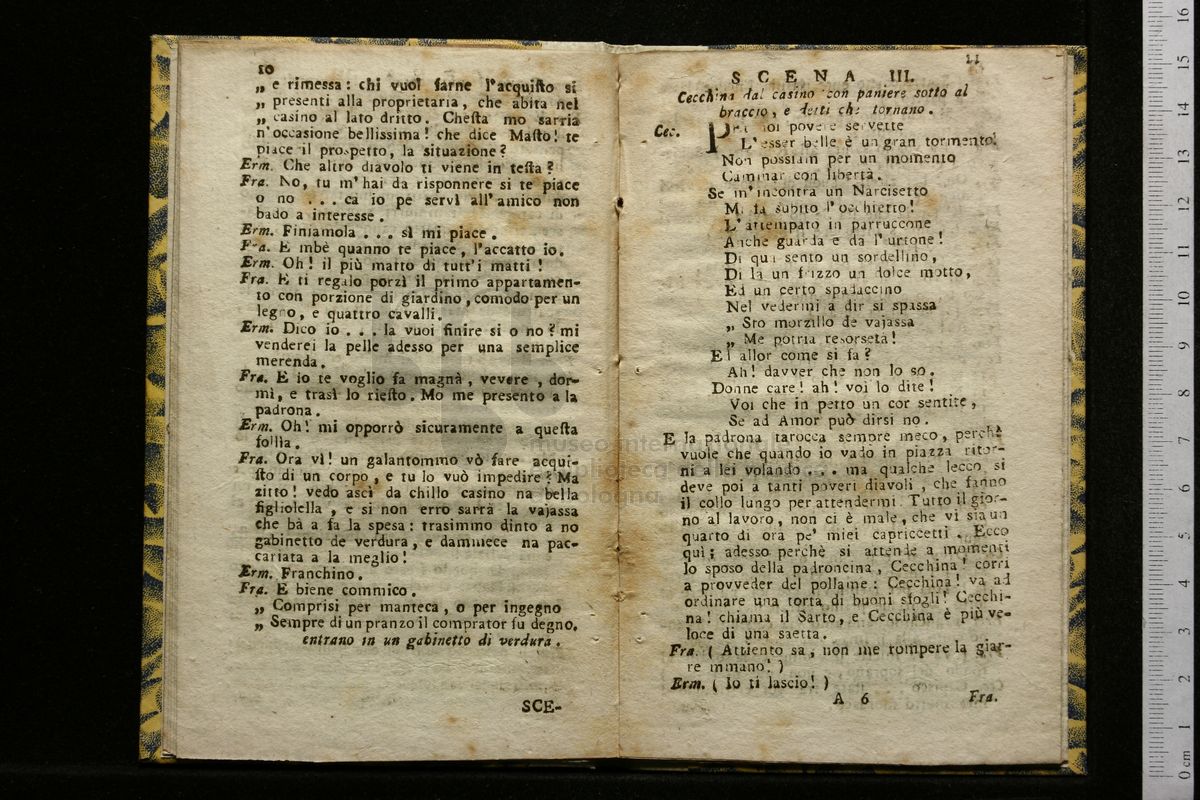 10
„ e rimessa: chi vuol farne l'acquiſto si
„ presenti alla proprietaria, che abita nel
„ casino al lato dritto. Cheſta mo sarria
n'occasione bellissima! che dice Maſto! te
piace il prospetto, la situazione?
Erm. Che altro diavolo ti viene in teſta?
Fra. No, tu m'hai da risponnere si te piace
o no . . . ca io pe servì all'amico non
bado a interesse.
Erm. Finiamola . . . sì mi piace.
Fra. E mbè quanno te piace, l'accatto io.
Erm. Oh! il più matto di tutt'i matti!
Fra. E ti regalo porzì il primo appartamen-
to con porzione di giardino, comodo per un
legno, e quattro cavalli.
Erm. Dico io . . . la vuoi finire si o no? mi
venderei la pelle adesso per una semplice
merenda.
Fra. E io te voglio fa magnà, vevere, dor-
mì, e trasì lo rieſto. Mo me presento a la
padrona.
Erm. Oh! mi opporrò sicuramente a queſta
follia.
Fra. Ora vì! un galantommo vò fare acqui-
ſto di un corpo, e tu lo vuò impedire? Ma
zitto! vedo ascì da chillo casino na bella
figliolella, e si non erro sarrà la vajassa
che bà a fa la spesa: trasimmo dinto a no
gabinetto de verdura, e dammece na pac-
cariata a la meglio!
Erm. Franchino.
Fra. E biene commico.
„ Comprisi per manteca, o per ingegno
„ Sempre di un pranzo il comprator fu degno.
entrano in un gabinetto di verdura.
SCE-
11
SCENA III.
Cecchina dal casino con paniere sotto al
braccio, e detti che tornano.
Cec. Per noi povere servette
L'esser belle è un gran tormento!
Non possiam per un momento
Camminar con libertà.
Se m'incontra un Narcisetto
Mi fa subito l'occhietto!
L'attempato in parruccone
Anche guarda e da l'urtone!
Di qui sento un sordellino,
Di la un frizzo un dolce motto,
Ed un certo spadaccino
Nel vedermi a dir si spassa
„ Sto morzillo de vajassa
„ Me potria resorseta!
Ed allor come si fa?
Ah! davver che non lo so.
Donne care! ah! voi lo dite!
Voi che in petto un cor sentite,
Se ad Amor può dirsi no.
E la padrona tarocca sempre meco, perchè
vuole che quando io vado in piazza ritor-
ni a lei volando . . . ma qualche lecco si
deve poi a tanti poveri diavoli, che fanno
il collo lungo per attendermi. Tutto il gior-
no al lavoro, non ci è male, che vi sia un
quarto di ora pe' miei capriccetti. Ecco
quì; adesso perchè si attende a momenti
lo sposo della padroncina, Cecchina! corri
a provveder del pollame: Cecchina! va ad
ordinare una torta di buoni sfogli! Cecchi-
na! chiama il Sarto, e Cecchina è più ve-
loce di una saetta.
Fra. (Attiento sa, non me rompere la giar-
re mmano!)
Erm. (Io ti lascio!)
A 6 Fra.
museo internazionale
biblioteca
bologna
0 cm 1 2 3 4 5 6 7 8 9 10 11 12 13 14 15 16